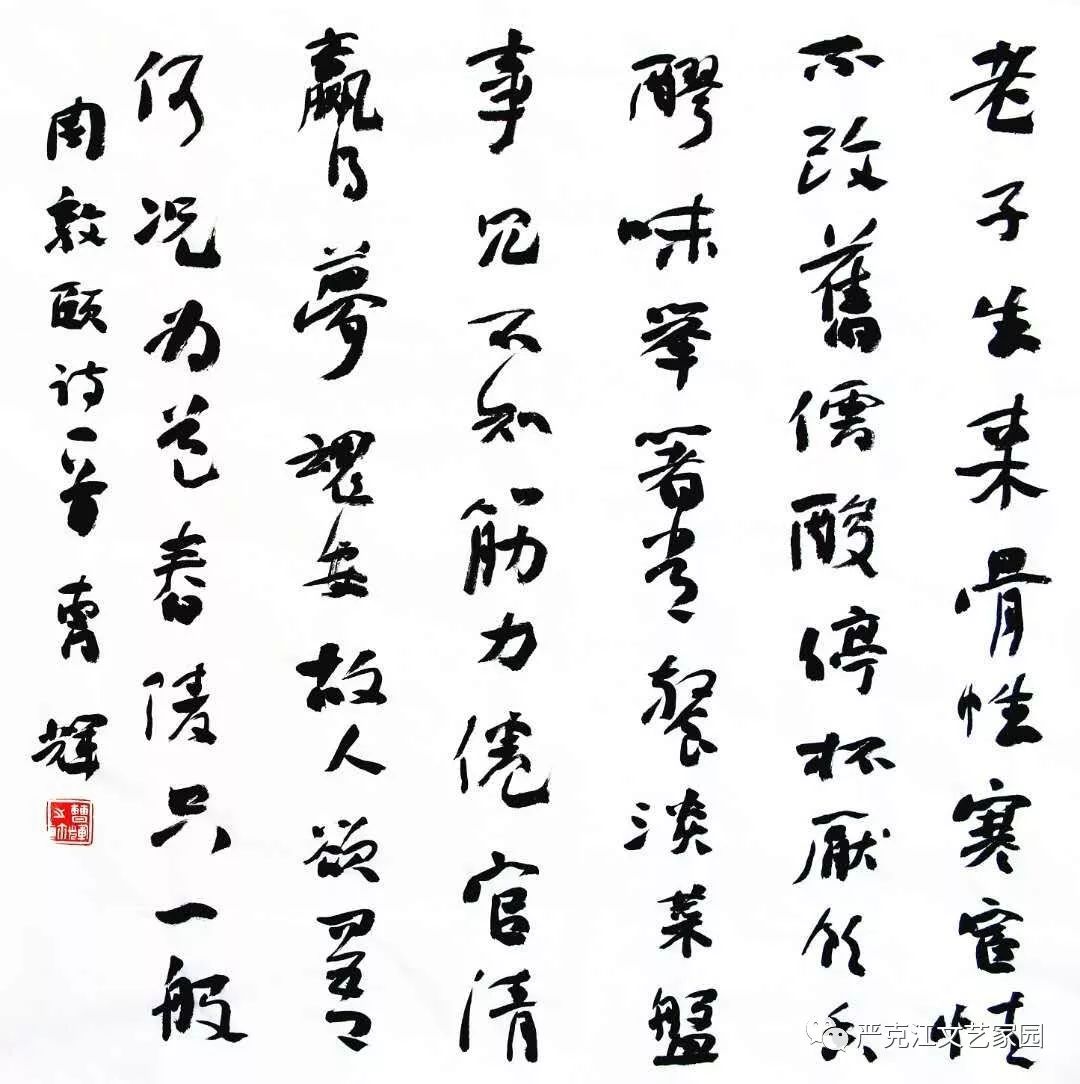 老子生来骨性寒宦情
不改舊儒酸停杯厭飲香
醪味举箸常餐淡菜盤
事冗不知筋力倦官清
贏得夢魂安故人欲問吾
何况为道舂陵只一般
周敦颐诗一首 曹輝
严克江文艺家园